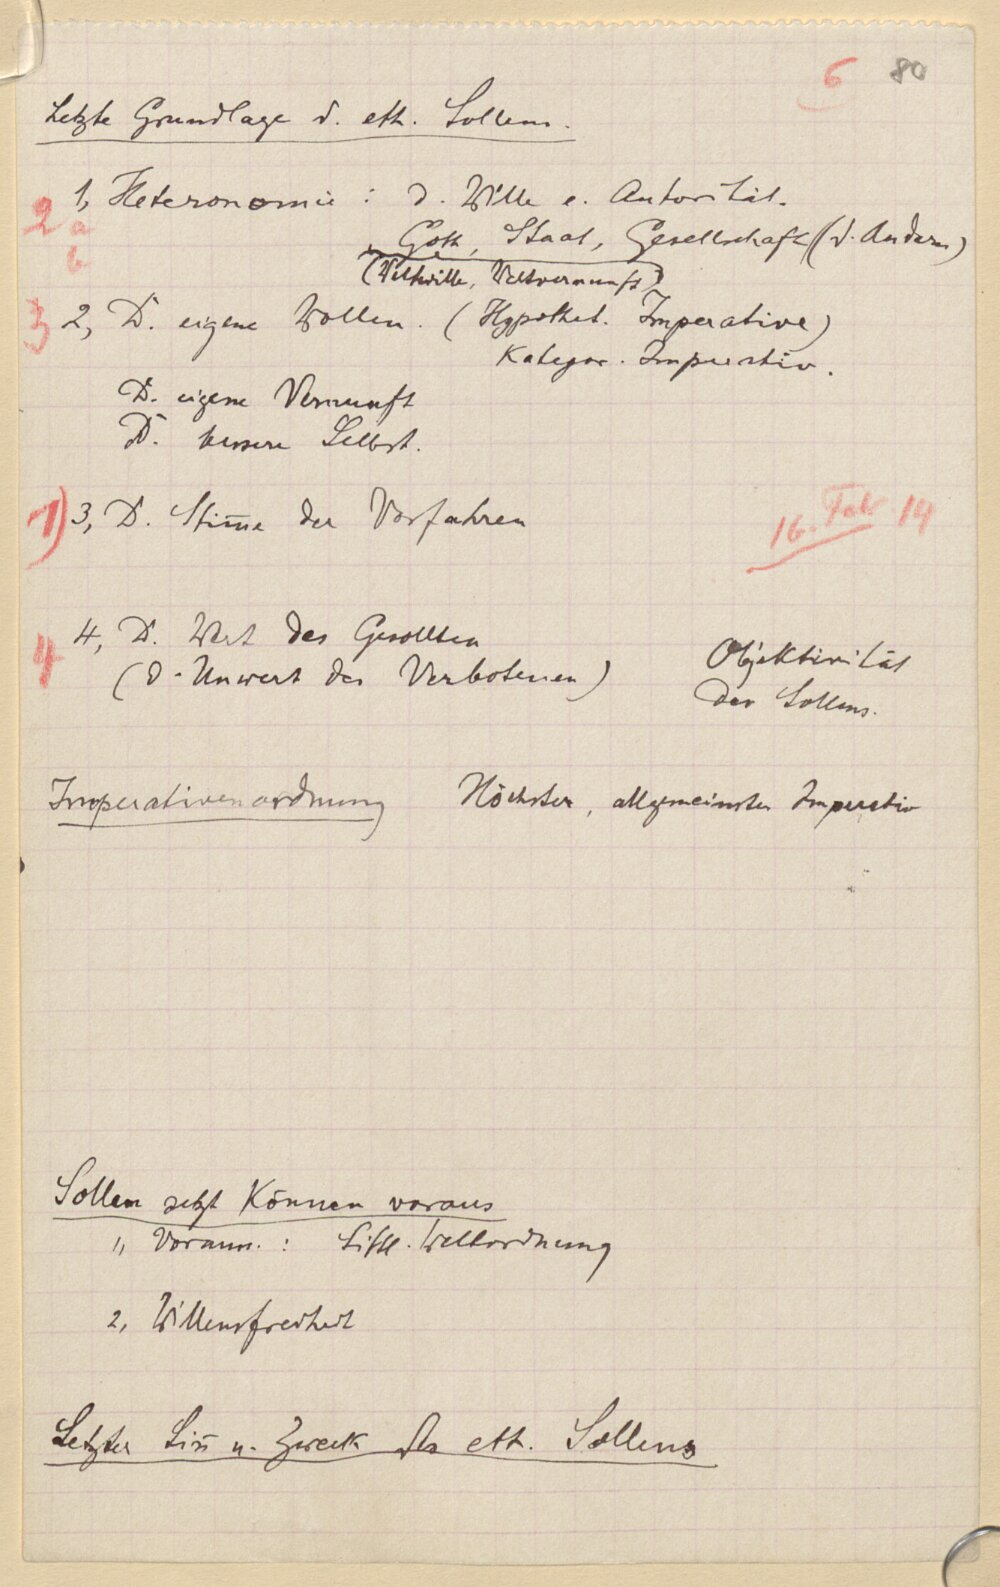 6 80
Letzte Grundlage d. eth. Sollens.
2 1, Heteronomie : d. Wille e. Autorität.
a Gott, Staat, Gesellschaft (d. Andern)
b (Weltwille, Weltvernunft)
3 2, D. eigene Wollen. (Hypothet. Imperative)
Kategor. Imperativ.
D. eigene Vernunft
D. bessere Selbst.
1) 3, D. Stim̄e der Vorfahren
16. Febr 14
4 4, D. Wert des Gesollten
(d. Unwert des Verbotenen)
Objektivität
des Sollens.
Imperativenordnung Höchster, allgemeinster Imperativ
Sollen setzt Können voraus
1, Voraus. : Sittl. Weltordnung
2, Willensfreiheit
Letzter Sin̄ u. Zweck des eth. Sollens